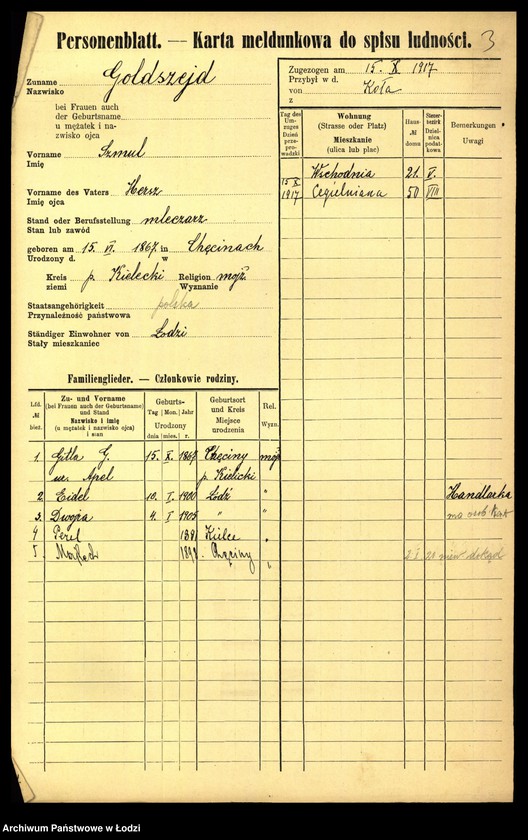 Personenblatt. — Karta meldunkowa do spisu ludności. 3
Zuname Goldszejd
Nazwisko
bei Frauen auch
der Geburtsname
u mężatek i na-
zwisko ojca
Vorname Szmul
Imię
Vorname des Vaters Hersz
Imię ojca
Stand oder Berufsstellung mleczarz
Stan lub zawód
geboren am 15. VI. 1867 in Chęcinach
Urodzony d. w
Kreis p. Kielecki Religion mojż.
ziemi Wyznanie
Staatsangehörigkeit polska
Przynależność państwowa
Ständiger Einwohner von Łodzi
Stały mieszkaniec
Zugezogen am 15. X. 1917
Przybył w d.
von Koła
z
Tag des Um-zuges Dzień przeprowadzki
Wohnung (Strasse oder Platz) Mieszkanie (ulica lub plac)
Haus- № domu
Steuer-bezirk Dzielnica podatkowa
Bemerkungen Uwagi
Wschodnia 21. V.
15 X 1917 Cegielniana 50 VIII
Familienglieder. — Członkowie rodziny.
Lfd. № bież.
Zu- und Vorname (bei Frauen auch der Geburtsname) und Stand Nazwisko i imię (u mężatek i nazwisko ojca) i stan
Geburts- Tag Mon. Jahr Urodzony dnia mies. r.
Geburtsort und Kreis Miejsce urodzenia
Rel. Wyzn.
1. Gitla G. 15. X. 1867 Chęciny mojż
ur. Apel p. Kielicki
2. Eidel 10. I. 1900 Łódź " Handlarka
3. Dwojra 4. I 1905 " " ma osob. kart
4 Perel 1891 Kielce "
5. 1890. Chęciny " 21 niew. dokąd
Archiwum Państwowe w Łodzi